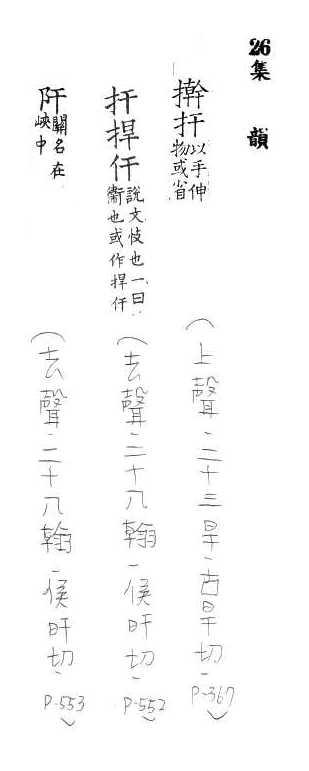 26集 韻
擀扞以手伸物或省(上聲.二十三旱.古旱切.P-367)
扞捍仠說文忮也一曰衞也或作捍仠(去聲.二十八翰.侯旰切.P-552)
䦎名在峽中(去聲.二十八翰.侯旰切.P-553)